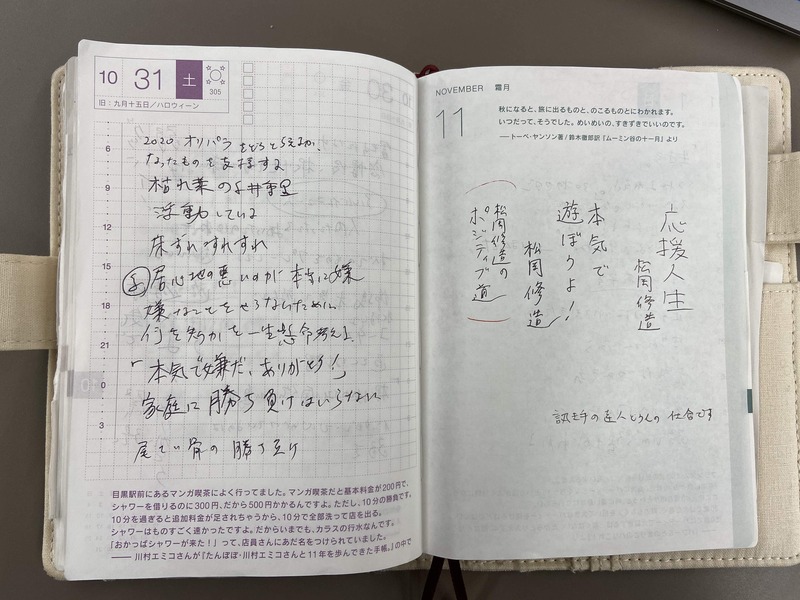 10 31 土 305
旧:九月十五日/ハロウィーン
6
9
12
15
18
21
0
3
2020 オリパラ をどうとらえるか
なったものを支援する
枯れ葉の 井重里
活動している
床ずれ すれすれ
居心地の悪いのが 本当に嫌
嫌なことをせらないために
何を 一生懸命考え
「本気で嫌だ、ありがとう!」
家庭に 勝ち負けはいらない
尾てい骨の 勝ち 負け
目黒駅前にあるマンガ喫茶によく行ってました。マンガ喫茶だと基本料金が200円で、
シャワーを借りるのに300円、だから500円かかるんですよ。ただし、10分の勝負です。
10分を過ぎると追加料金が足されちゃうから、10分で全部洗って店を出る。
シャワーはものすごく速かったですよ。だからいまでも、カラスの行水なんです。
「おかっぱシャワーが来た!」って、店員さんにあだ名をつけられていました。
——川村エミコさんが『たんぽぽ・川村エミコさんと11年を歩んできた手帳。』の中で
NOVEMBER 霜月
11
秋になると、旅に出るものと、のこるものとにわかれます。
いつだって、そうでした。めいめいの、すきずきでいいのです。
——トーベ・ヤンソン著/鈴木徹郎訳『ムーミン谷の十一月』より
応援人生
松岡修造
本気で
遊ぼうよ!
松岡修造
松岡修造の
ポジティブ道
の達人 の 仕合です